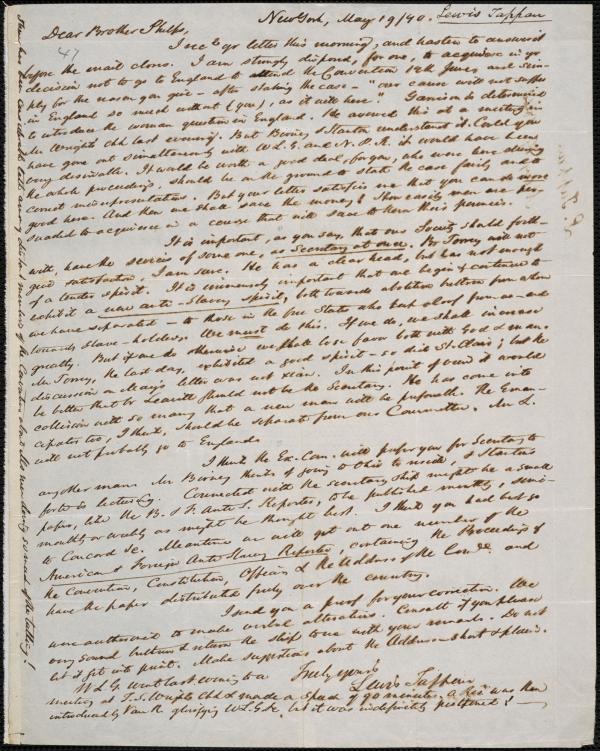 New York, May 19/40. Lewis Tappan
Dear Brother Phelps,
47
I rec'd yr letter this morning, and hasten to answer it
before the mail closes. I am strongly disposed, for one, to acquiesce in yr
decision not to go to England to attend the Convention 12th June, and sim-
ply for the reason you give - after stating the case - "our cause will not suffer
in England so much without (you), as it will here." Garrison is determined
to introduce the woman question in England. He avowed this at a meeting in
Mr. Wright's chh last evening. But Birney & Stanton understand it. Could you
have gone out simultaneously with W.L.G. and N.P.R. it would have been
very desirable. It would be worth a good deal, for you, who were here during
the whole proceedings, should be on the ground to state the case fairly and to
correct misrepresentation. But your letter satisfies me that you can do more
good here. And then we shall save the money! How easily men are per-
suaded to acquiesce in a course that will save to them their pennies.
It is important, as you say, that our Society should forth-
with, have the services of some one, as Secretary at once. Br Torrey will not
give satisfaction, I am sure. He has a clear head, but has not enough
of a tender spirit. It is immensely important that we begin & continue to
exhibit a new anti-slavery spirit, both towards abolition brethren from whom
we have separated - to those in the free States who kept aloof from us - and
towards slave-holders. We must do this. If we do, we shall increase
greatly. But if we do otherwise we shall lose favor both with God & man.
Mr Torrey, the last day, exhibited a good spirit - so did St. Clair; but the
discussion on May's letter was not Xian. In this point of view it would
be better that Br Leavitt should not be the Secretary. He has come into
collision with so many that a new man will be preferable. The Eman-
cipator too, I think, should be separate from our Committee. Mr L.
will not probably go to England.
I think the Ex. Com. will prefer you for Secretary to
any other man. Mr Birney thinks of going to Ohio to reside, & Stanton
prefers lecturing. Connected with the Secretaryship might be a small
paper, like the B. & F. Anti S. Reporter, to be published monthly, semi-
monthly or weekly as might be thought best. I think you had best go
to Concord &c. Meantime we will get out one number of the
American & Foreign Anti Slavery Reporter, containing the Proceedings of
the Convention, Constitution, Officers & the Address of the Com'ee. and
have the paper distributed freely over the country.
I send you a proof for your correction. We
were authorised to make verbal alterations. Consult if you please
any sound brethren & return the slip to me with your remarks. Do not
let it get into print. Make suggestions about the Address - short & plain.
Truly yours
Lewis Tappan
W.L.G. went last evening to a
meeting at T.S. Wright's Chh & made a speech of 90 minutes. a Res. was then
introduced by Van R. glorifying W.L.G &c. but it was indefinitely postponed! —
There has been considerable talk among